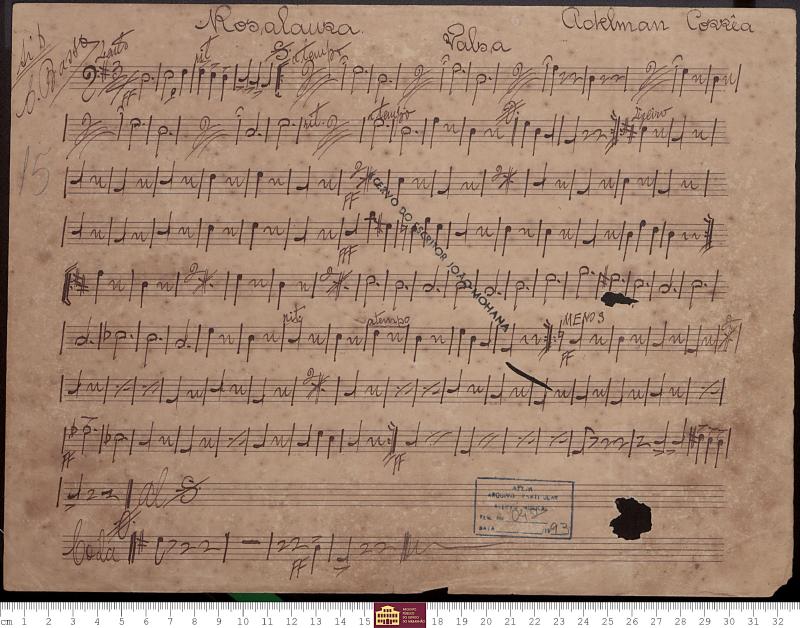 Rosalaura. Adelman Corrêa
Valsa
Si b
C. Basso
Lento
rit
a tempo
ff
rit. a tempo
15
FF
FFF
rit a tempo MENOS
FF
FF FF
al S
Coda
FF
ACERVO DO ESCRITOR JOÃO MOHANA
APEM
ARQUIVO PARTICULAR
REG. No
DATA 1993
ARQUIVO PÚBLICO DO ESTADO DO MARANHÃO
cm 1 2 3 4 5 6 7 8 9 10 11 12 13 14 15 17 18 19 20 21 22 23 24 25 26 27 28 29 30 31 32